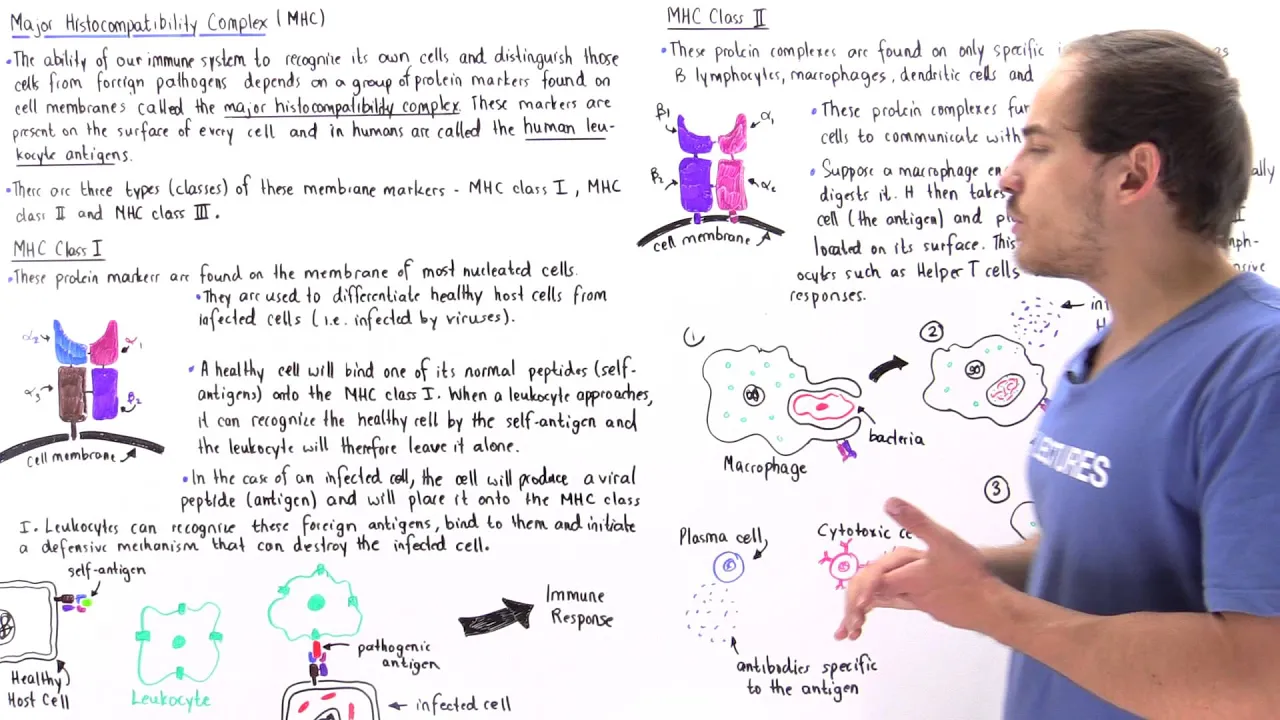 Major Histocompatibility Complex (MHC)
•The ability of our immune system to recognize its own cells and distinguish those
cells from foreign pathogens depends on a group of protein markers found on
cell membranes called the major histocompatibility complex. These markers are
present on the surface of every cell and in humans are called the human leu-
kocyte antigens.
•There are three types (classes) of these membrane markers - MHC class I, MHC
class II and MHC class III.
MHC Class I
•These protein markers are found on the membrane of most nucleated cells.
•They are used to differentiate healthy host cells from
infected cells (i.e. infected by viruses).
α2
α1
α3
β2
cell membrane
•A healthy cell will bind one of its normal peptides (self-
antigens) onto the MHC class I. When a leukocyte approaches,
it can recognize the healthy cell by the self-antigen and
the leukocyte will therefore leave it alone.
•In the case of an infected cell, the cell will produce a viral
peptide (antigen) and will place it onto the MHC class
I. Leukocytes can recognize these foreign antigens, bind to them and initiate
a defensive mechanism that can destroy the infected cell.
self-antigen
Healthy
Host Cell
Leukocyte
pathogenic
antigen
infected cell
Immune
Response
MHC Class II
•These protein complexes are found on only specific
B lymphocytes, macrophages, dendritic cells and
β1
α1
β2
α2
cell membrane
•These protein complexes
cells to communicate with
•Suppose a macrophage
digests it. It then takes
cell (the antigen) and
located on its surface. This
ocytes such as Helper T cells
responses.
1
2
bacteria
Macrophage
3
Plasma cell
Cytotoxic
antibodies specific
to the antigen
LECTURES